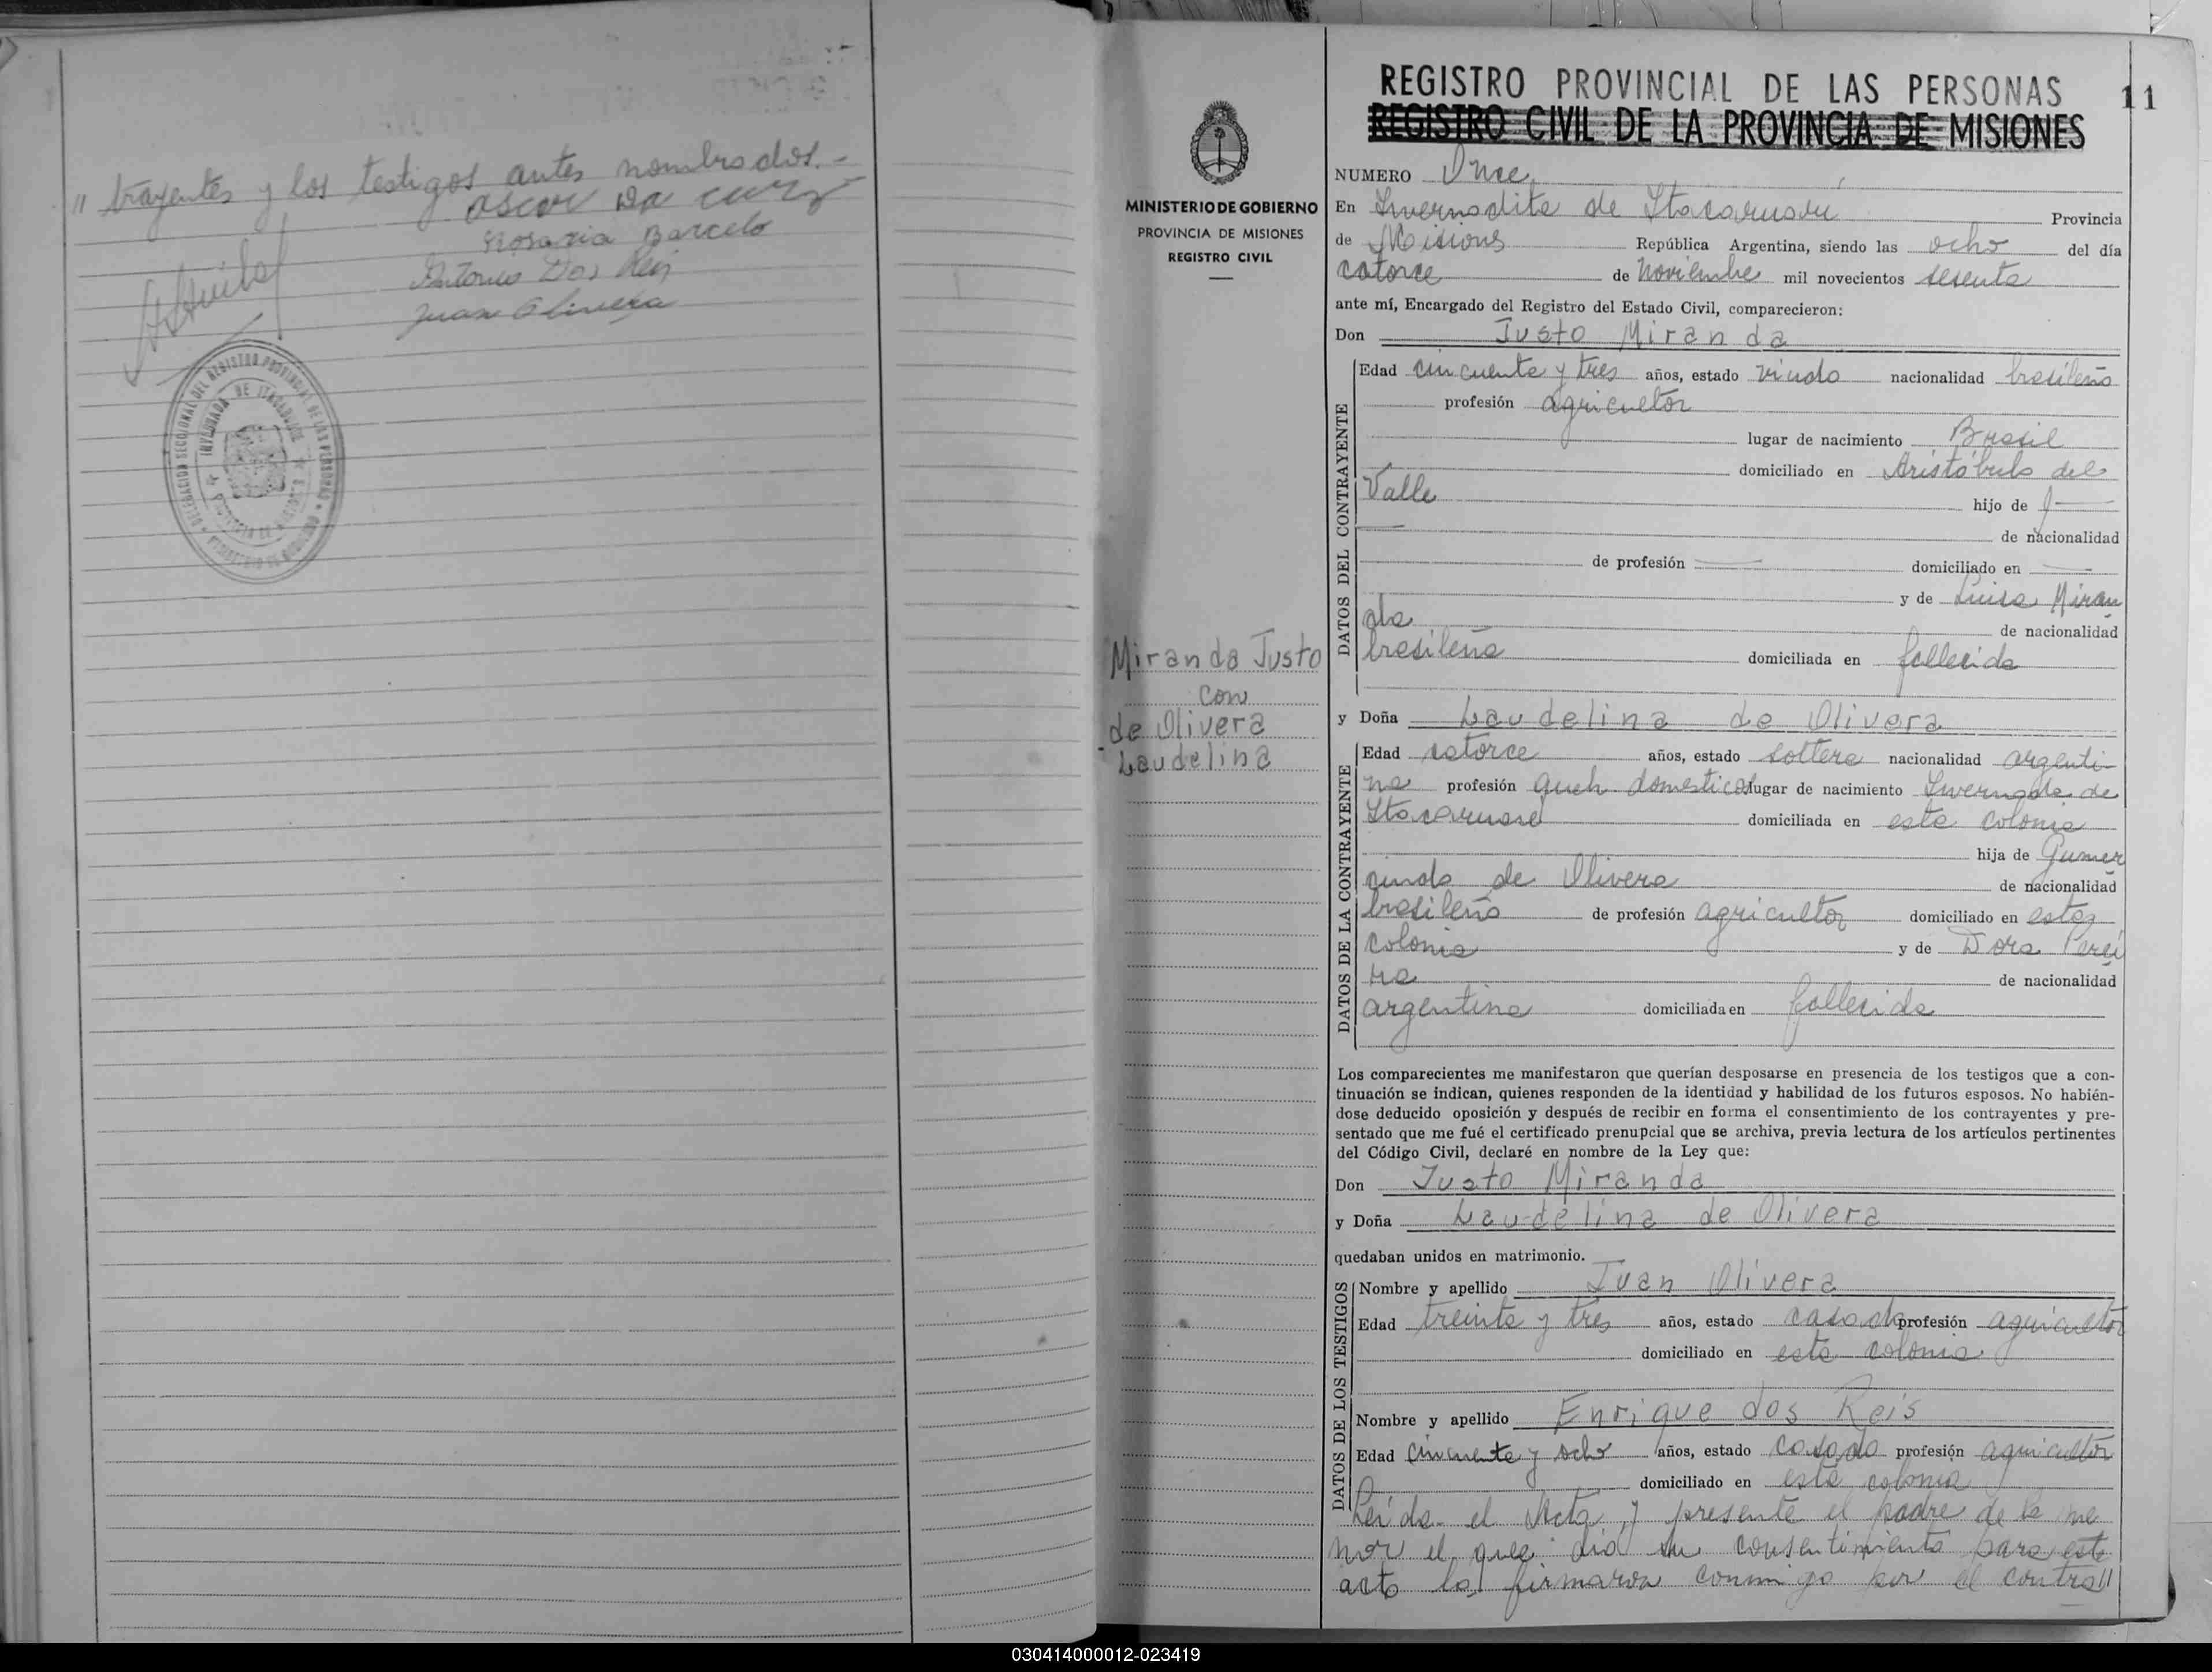 " trayentes y los testigos antes nombrados.-
oscar Da cruz
Rosaria Barcelo
Antonio Dos Reis
Juan Olivera
DELEGACION SECCIONAL DEL REGISTRO PROVINCIAL DE LAS PERSONAS
INVERNADA DE ITACARUARE
MINISTERIO DE GOBIERNO
PROVINCIA DE MISIONES
REGISTRO CIVIL
Miranda Justo
con
de Olivera
Laudelina
REGISTRO PROVINCIAL DE LAS PERSONAS
11
REGISTRO CIVIL DE LA PROVINCIA DE MISIONES
NUMERO Once
En Invernadita de Itacaruaré Provincia
de Misiones República Argentina, siendo las ocho del día
catorce de Noviembre mil novecientos sesenta
ante mí, Encargado del Registro del Estado Civil, comparecieron:
Don Justo Miranda
DATOS DEL CONTRAYENTE
Edad cincuenta y tres años, estado viudo nacionalidad brasileño
profesión agricultor
lugar de nacimiento Brasil
domiciliado en Aristóbulo del
Valle hijo de
de nacionalidad
de profesión domiciliado en
y de Luisa Miran
da de nacionalidad
brasileña domiciliada en fallecida
y Doña Laudelina de Olivera
DATOS DE LA CONTRAYENTE
Edad catorce años, estado soltera nacionalidad argenti-
na profesión queh. domesticos lugar de nacimiento Invernada de
Itacaruaré domiciliada en esta colonia
hija de Gumer
cindo de Olivera de nacionalidad
brasileño de profesión agricultor domiciliado en esta
colonia y de Dora Perei
ra de nacionalidad
argentina domiciliada en fallecida
Los comparecientes me manifestaron que querían desposarse en presencia de los testigos que a con-
tinuación se indican, quienes responden de la identidad y habilidad de los futuros esposos. No habién-
dose deducido oposición y después de recibir en forma el consentimiento de los contrayentes y pre-
sentado que me fué el certificado prenupcial que se archiva, previa lectura de los artículos pertinentes
del Código Civil, declaré en nombre de la Ley que:
Don Justo Miranda
y Doña Laudelina de Olivera
quedaban unidos en matrimonio.
DATOS DE LOS TESTIGOS
Nombre y apellido Juan Olivera
Edad treinta y tres años, estado casado profesión agricultor
domiciliado en esta colonia
Nombre y apellido Enrique dos Reis
Edad cincuenta y ocho años, estado casado profesión agricultor
domiciliado en esta colonia
Leída el Acta y presente el padre de la me
nor el que dio su consentimiento para este
acto la firmaron conmigo por el contra"
030414000012-023419